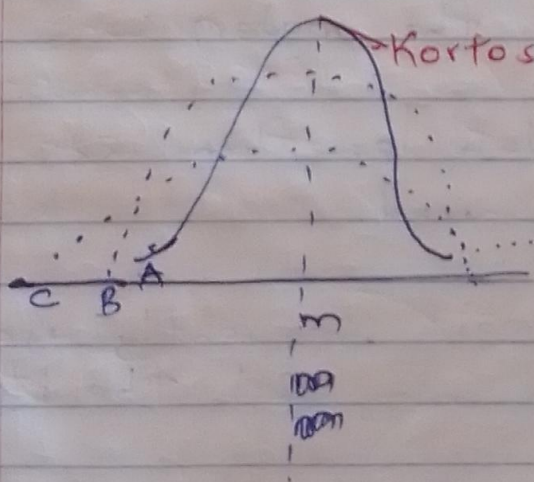 Kortos
C B A
m